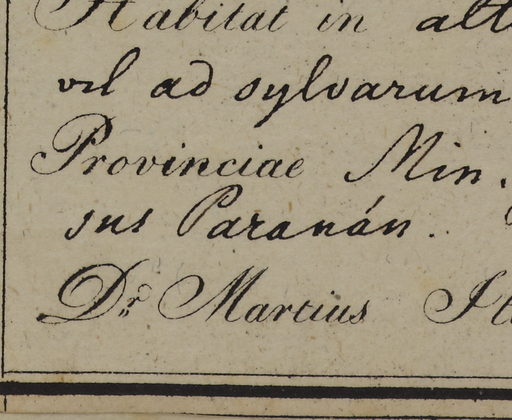 Habitat in alt
vel ad sylvarum
Provinciae Min.
sus Paranán.
Dr. Martius It